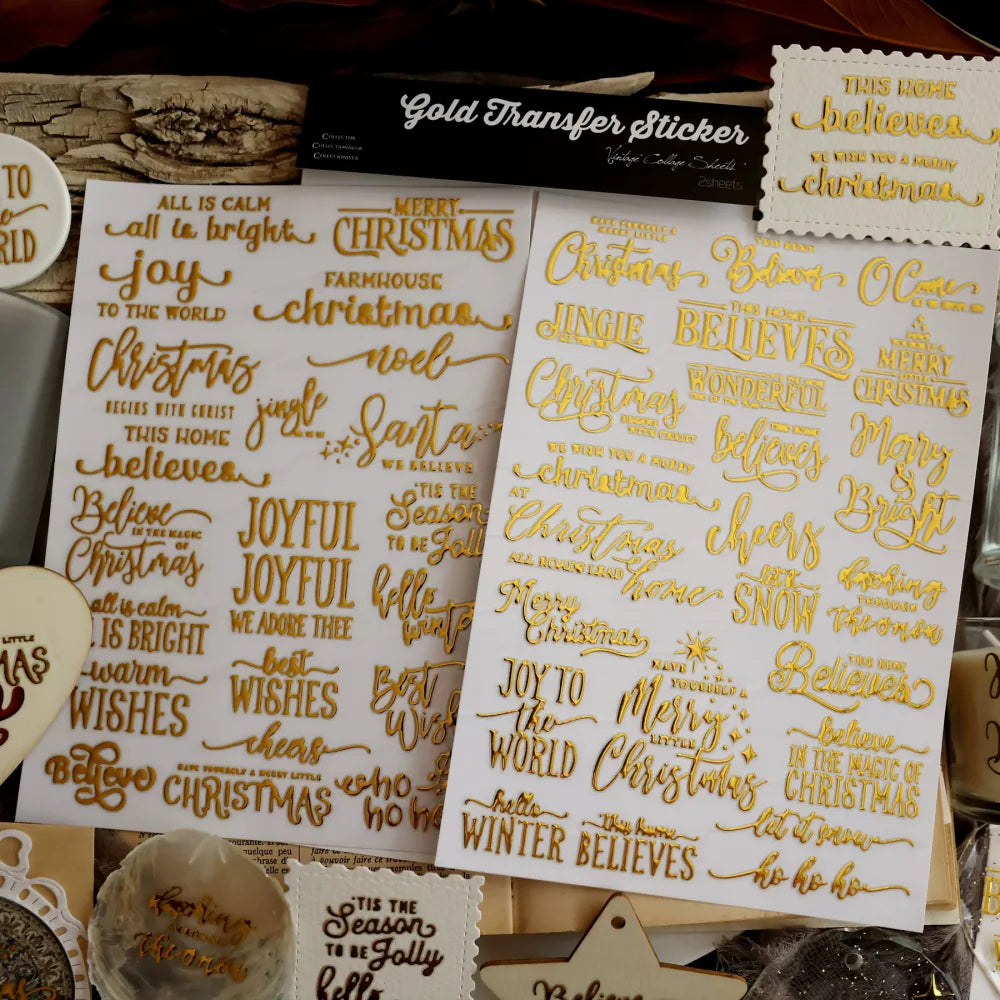 Gold Transfer Sticker
COLLECTOR
COLLECTIONNEUR
COLECCIONISTA
Vintage Collage Sheets
2sheets
THIS HOME
believes
WE WISH YOU A MERRY
christmas
TO
WORLD
ALL IS CALM
all is bright
MERRY
CHRISTMAS
joy
TO THE WORLD
FARMHOUSE
christmas
Christmas
BEGINS WITH CHRIST
noel
jingle
Santa
WE BELIEVE
THIS HOME
believes
Believe
IN THE MAGIC
OF
Christmas
JOYFUL
JOYFUL
WE ADORE THEE
'TIS THE
Season
TO BE Jolly
hello
winter
all is calm
IS BRIGHT
warm
WISHES
best
WISHES
Best
Wish
cheers
Believe
HAVE YOURSELF A MERRY LITTLE
CHRISTMAS
ho
ho ho
HAVE YOURSELF A
MERRY LITTLE
Christmas
THIS HOME
Believes
O Come
JINGLE
THIS HOME
BELIEVES
MERRY
CHRISTMAS
Christmas
BEGINS
WITH CHRIST
WONDERFUL
THIS HOME
believes
Merry
&
Bright
WE WISH YOU A MERRY
christmas
AT
Christmas
ALL ROADS LEAD
home
cheers
let it
SNOW
dashing
THROUGH
the snow
Merry
Christmas
HAVE
YOURSELF A
Merry
LITTLE
Christmas
THIS HOME
Believes
JOY TO
the
WORLD
believe
IN THE MAGIC OF
CHRISTMAS
hello
WINTER
this home
BELIEVES
let it snow
ho ho ho
LITTLE
MAS
dashing
the snow
'TIS THE
Season
TO BE Jolly
hello
Believes